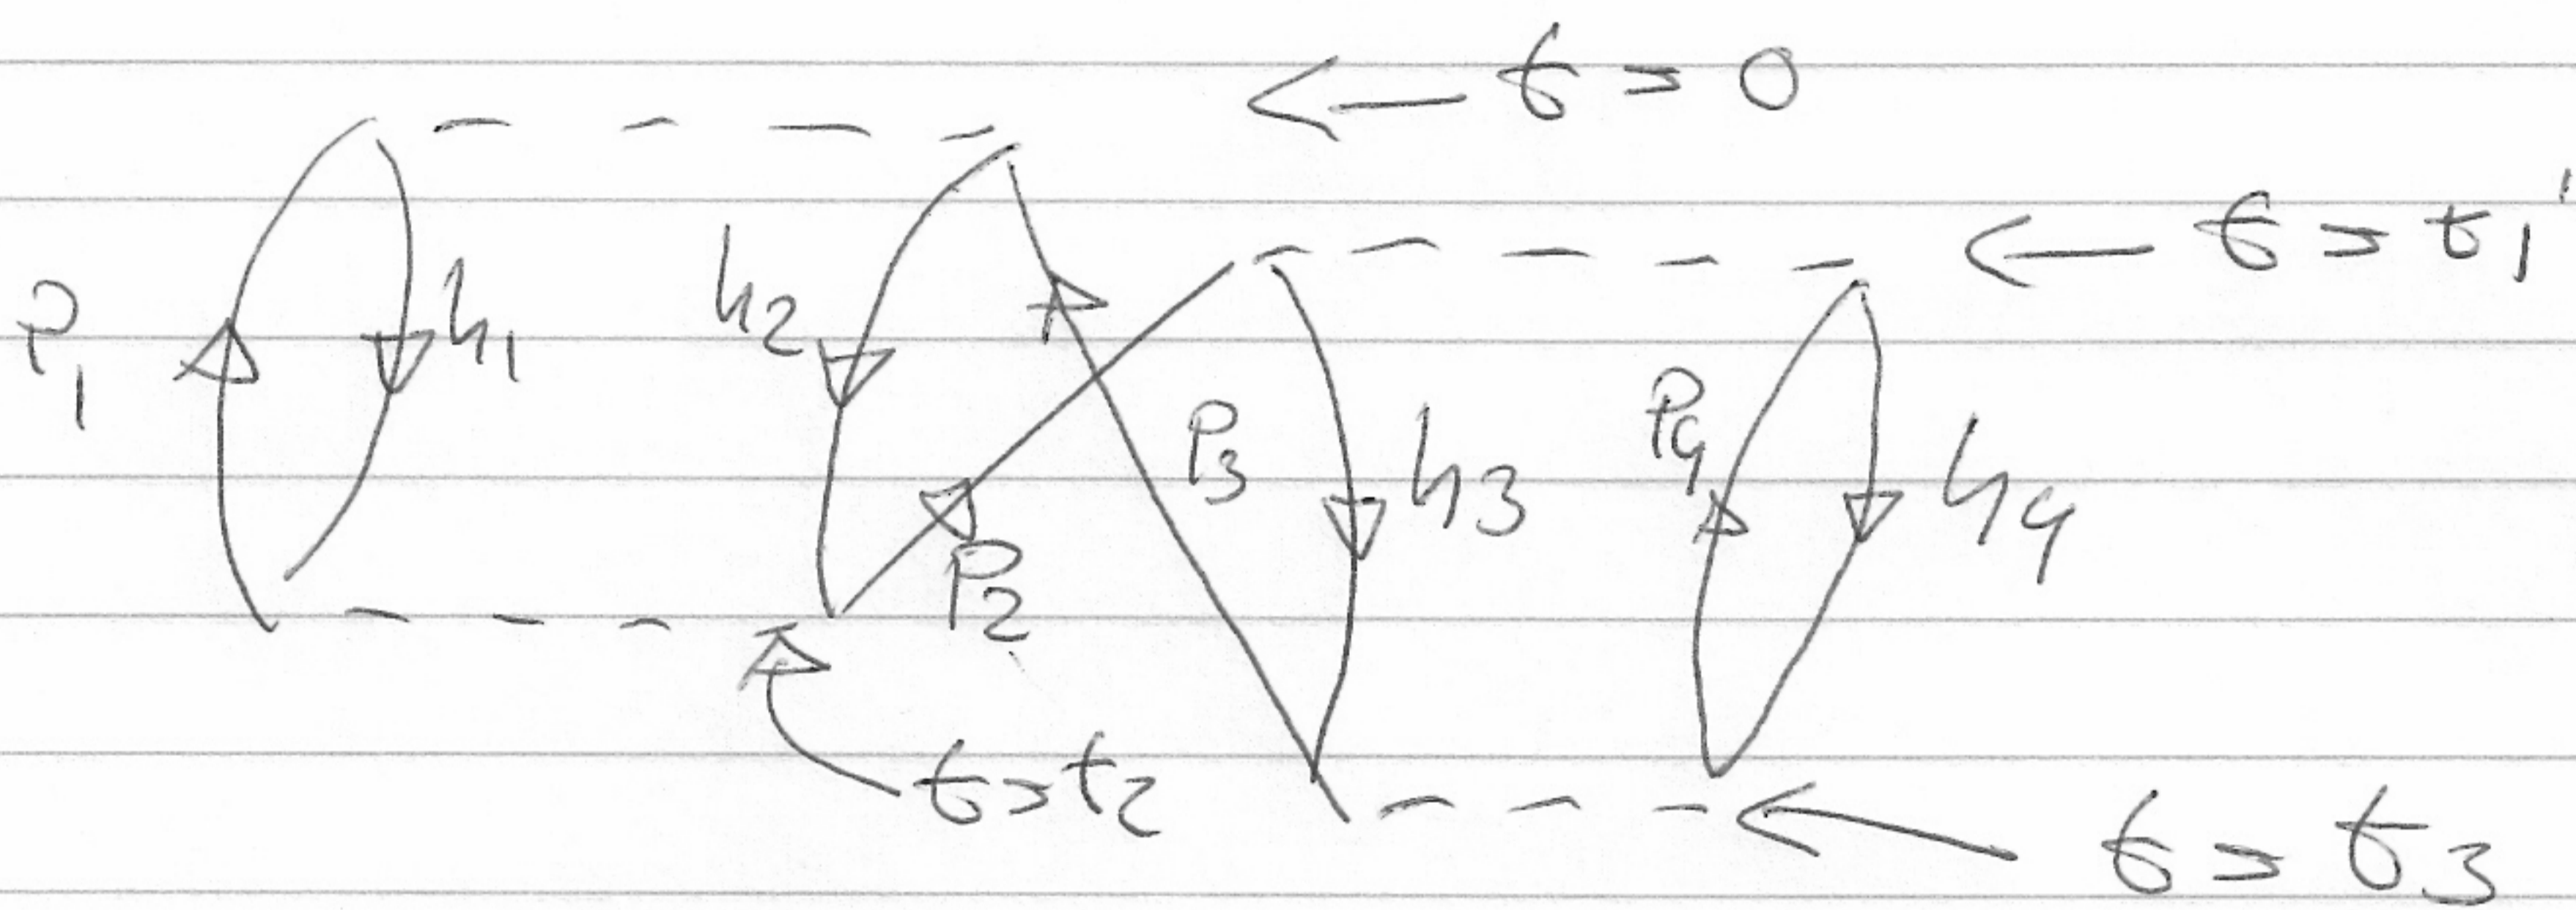 t = 0
t = t₁'
P₁ h₁ h₂ P₂ P₃ h₃ P₄ h₄
t = t₂
t = t₃